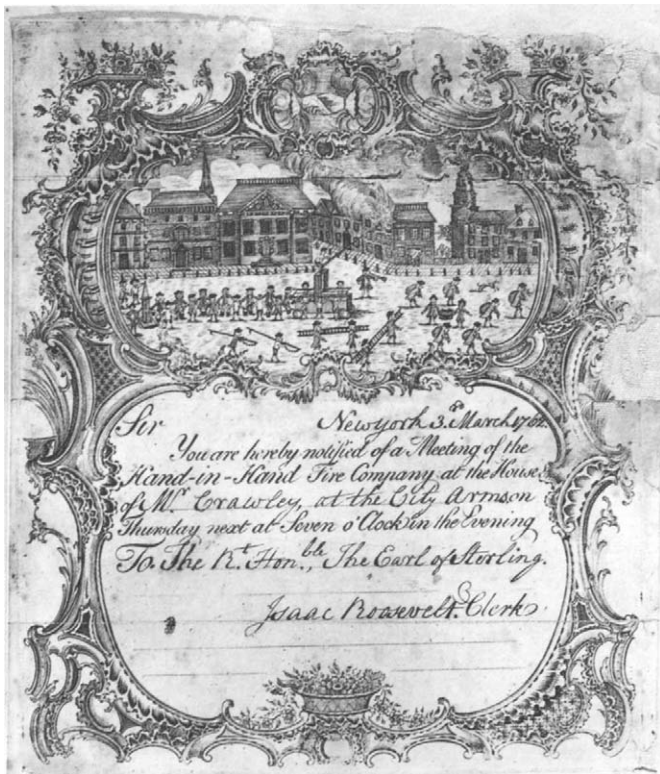 Sir New York 3d. March 1762.
You are hereby notified of a Meeting of the
Hand-in-Hand Fire Company at the House
of Mr. Crawley, at the City Arms on
Thursday next at Seven o'Clock in the Evening
To. The Rt. Honble., The Earl of Sterling.
Isaac Roosevelt. Clerk